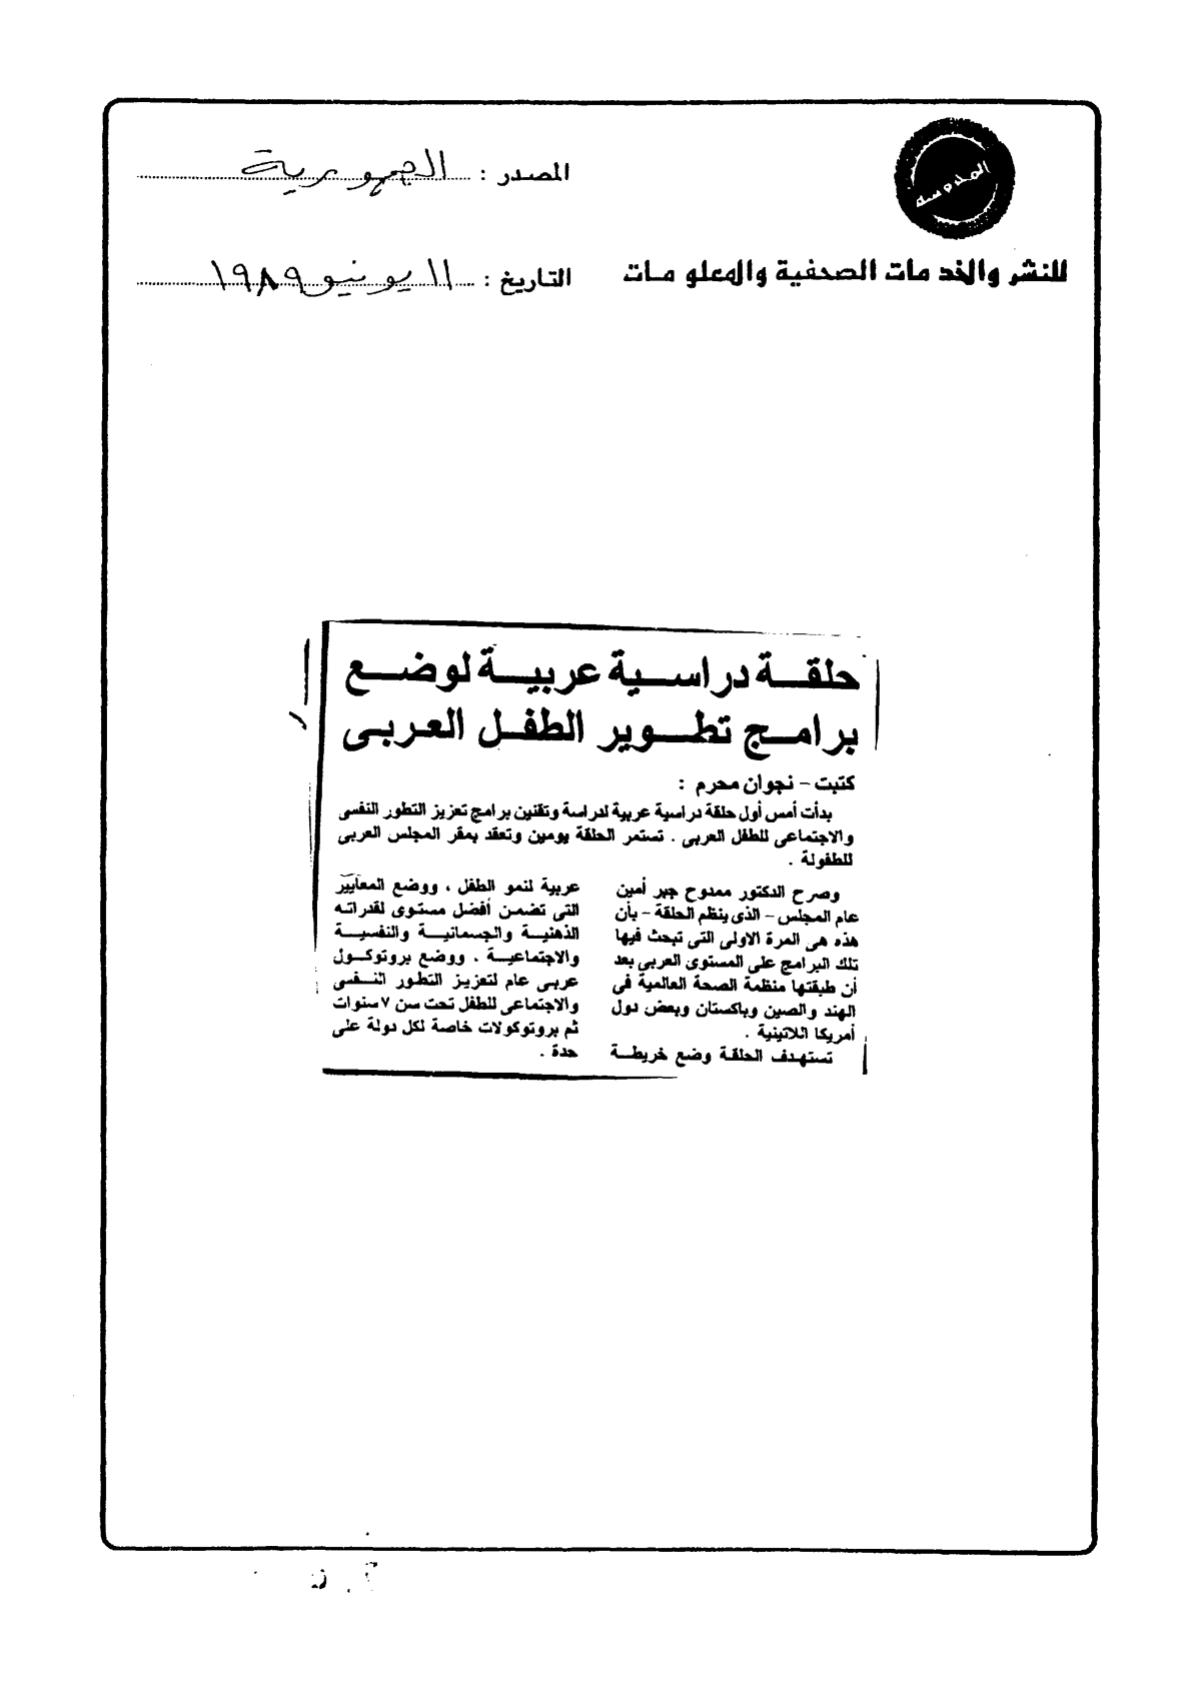 المدرسة
للنشر والخدمات الصحفية والمعلومات
المصدر : الجمهورية
التاريخ : ١١ يونيو ١٩٨٩
حلقة دراسية عربية لوضع
برامج تطوير الطفل العربى
كتبت - نجوان محرم :
بدأت أمس أول حلقة دراسية عربية لدراسة وتقنين برامج تعزيز التطور النفسى
والاجتماعى للطفل العربى . تستمر الحلقة يومين وتعقد بمقر المجلس العربى
للطفولة .
وصرح الدكتور ممدوح جبر أمين
عام المجلس - الذى ينظم الحلقة - بأن
هذه هى المرة الاولى التى تبحث فيها
تلك البرامج على المستوى العربى بعد
أن طبقتها منظمة الصحة العالمية فى
الهند والصين وباكستان وبعض دول
أمريكا اللاتينية .
تستهدف الحلقة وضع خريطة
عربية لنمو الطفل ، ووضع المعايير
التى تضمن أفضل مستوى لقدراته
الذهنية والجسمانية والنفسية
والاجتماعية ، ووضع بروتوكول
عربى عام لتعزيز التطور النفسى
والاجتماعى للطفل تحت سن ٧ سنوات
ثم بروتوكولات خاصة لكل دولة على
حدة .